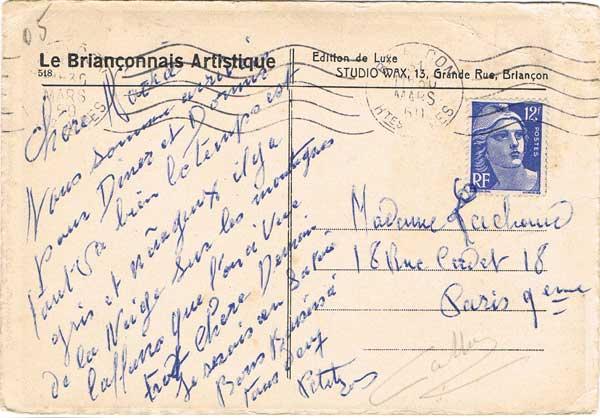 05
Le Briançonnais Artistique
518
Edition de Luxe
STUDIO WAX, 13, Grande Rue, Briançon
MARS
MARS
Htes
12F
POSTES
RF
Chère
Nous sommes arrivés
Pour Diner et Dormir
tout va bien le temps est
gris et nuageux il y a
de la Neige sur les montagnes
l'on a Vue
trop Chère Demain
Je serais en
Bons Baisers à
tous deux
Madame
18 Rue Cadet 18
Paris 9eme